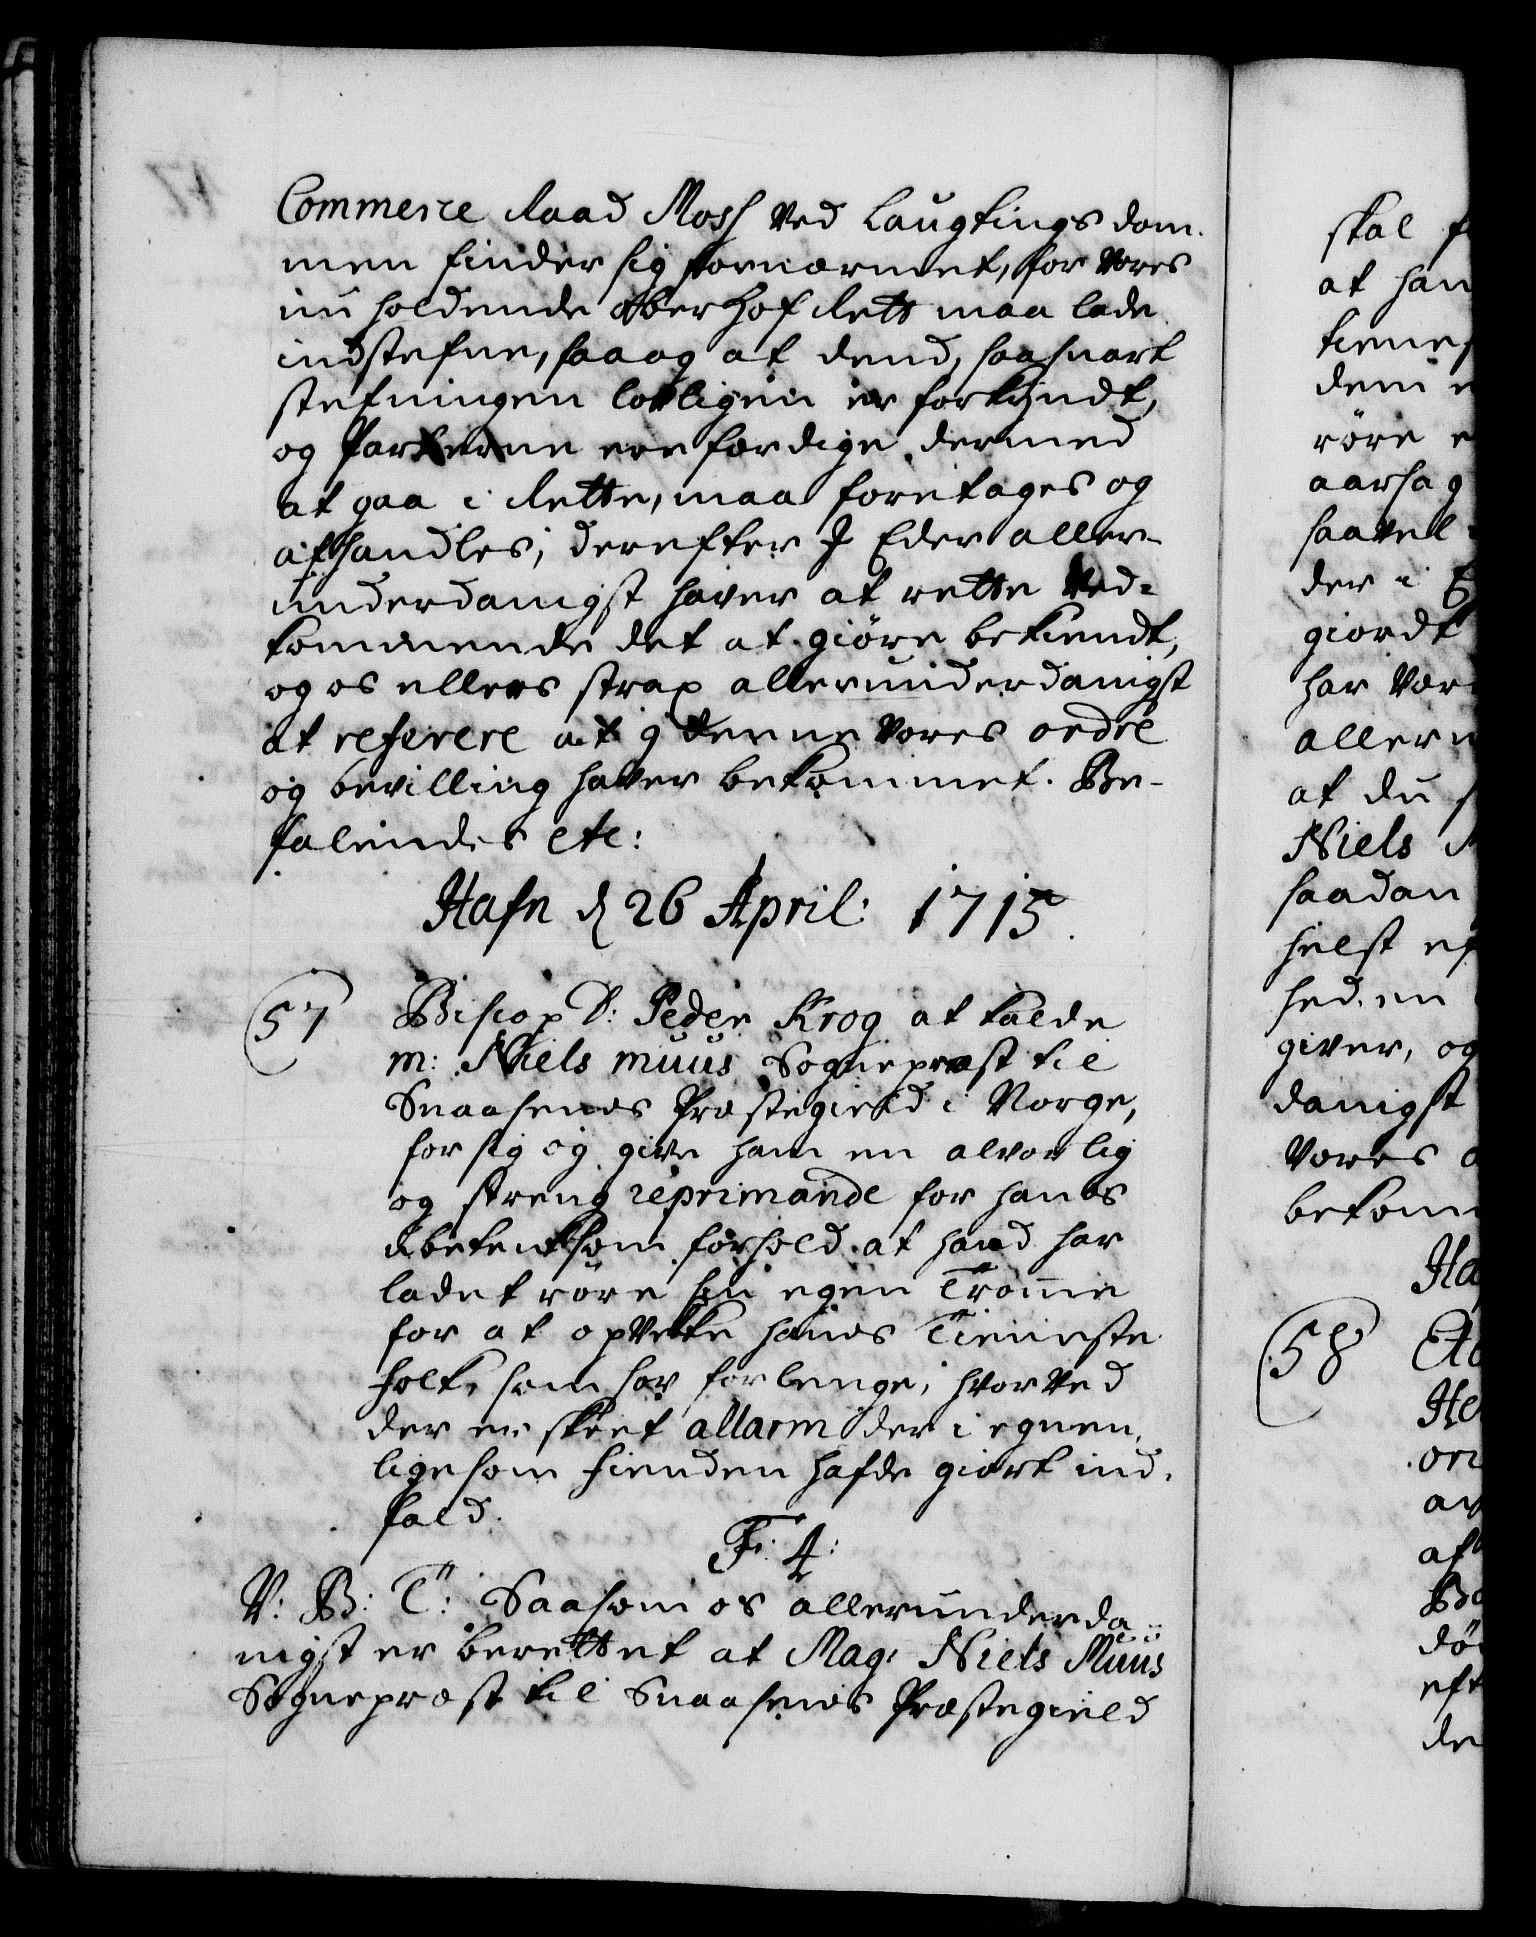 Commerce Raad Mossh ved Laugtings dom-
men finder sig fornærmet, for Vores
nu holdende Ober Hof Rett maa lade
indstefne, saa og at dend, saa snart
stefningen lovligen er forkyndt,
og Parterne ere færdige dermed
at gaa i Rette, maa foretages og
afhandles; derefter I Eder aller-
underdanigst haver at rette Ved-
kommende det at giöre bekiendt,
og os ellers strax allerunderdanigst
at referere at I denne Vores ordre
og bevilling haver bekommet. Be-
falendes etc:
Hafn d 26 April: 1715.
57 Biscop D: Peder Krog at kalde
m: Niels muus Sognepræst til
Snaasenes Præstegield i Norge,
for sig og give ham en alvorlig
og streng reprimande for hans
ubetenksom forhold at hand har
ladet röre sin egen Trom̅e
for at opvekke hands Tieneste
folk, som sov for lenge, hvorved
der er skeet allarm der i egnen,
ligesom fienden hafde giort ind-
fald.
F: 4:
V: B: T: Saasom os allerunderda-
nigst er berettet at Mag: Niels Muus
Sognepræst til Snaasenes Præstegield
skal f
at han
tienes
dem e
röre e
aarsag
saavel
der i E
giordt
har vær
allern
at du s
Niels M
saadan
helst ef
hed, en
giver, og
danigst
Vores o
bekom
Ha
58 Ab
He
ori
av
af
Be
dö
eft
de